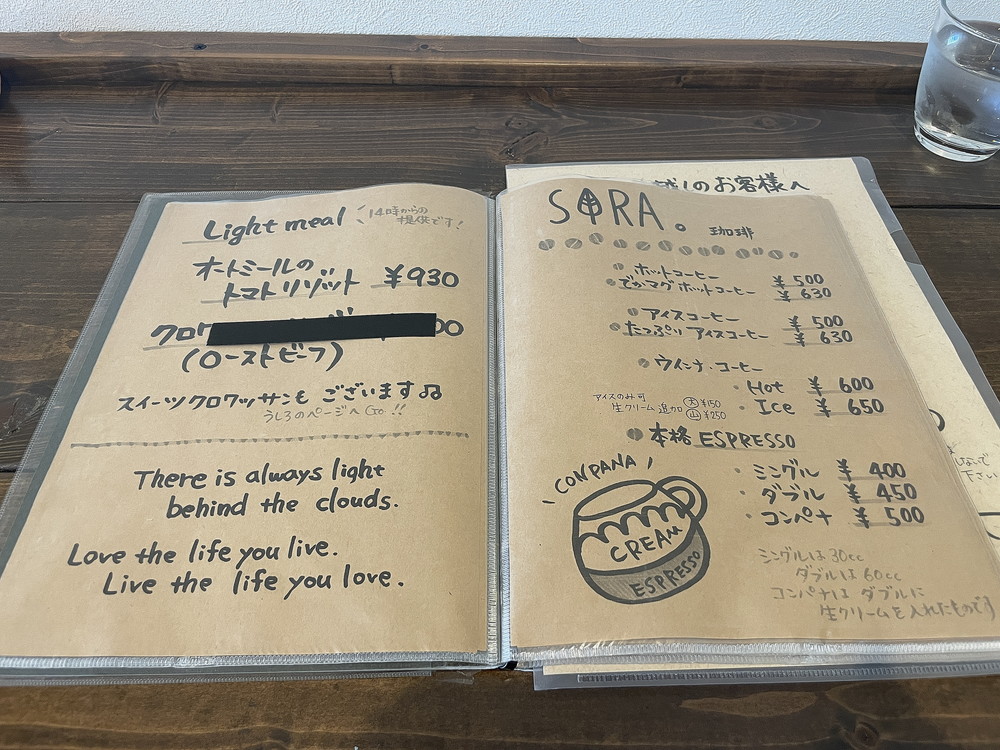 Light meal
14時からの
提供です!
オートミールの
トマトリゾット ¥930
クロワ
(ローストビーフ)
スイーツクロワッサンも ございます♫
うしろのページへ Go!!
There is always light
behind the clouds.
Love the life you live.
Live the life you love.
のお客様へ
SORA。 珈琲
ホットコーヒー ¥500
でかマグ ホットコーヒー ¥630
アイスコーヒー ¥500
たっぷり アイスコーヒー ¥630
ウインナ・コーヒー
・Hot ¥600
・Ice ¥650
アイスのみ可
生クリーム追加 大 ¥150
山 ¥250
本格 ESPRESSO
・シングル ¥400
・ダブル ¥450
・コンパナ ¥500
CONPANA
CREAM
ESPRESSO
シングルは30cc
ダブルは60cc
コンパナは ダブルに
生クリームを入れたものです
ないで
下さい